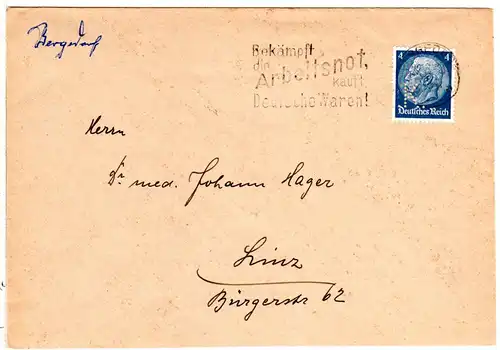 Bergedorf
Bekämpft
die
Arbeitsnot,
kauft
Deutsche Waren!
4 4
Deutsches Reich
Herrn
Dr med. Johann Hager
Linz
Bürgerstr 62